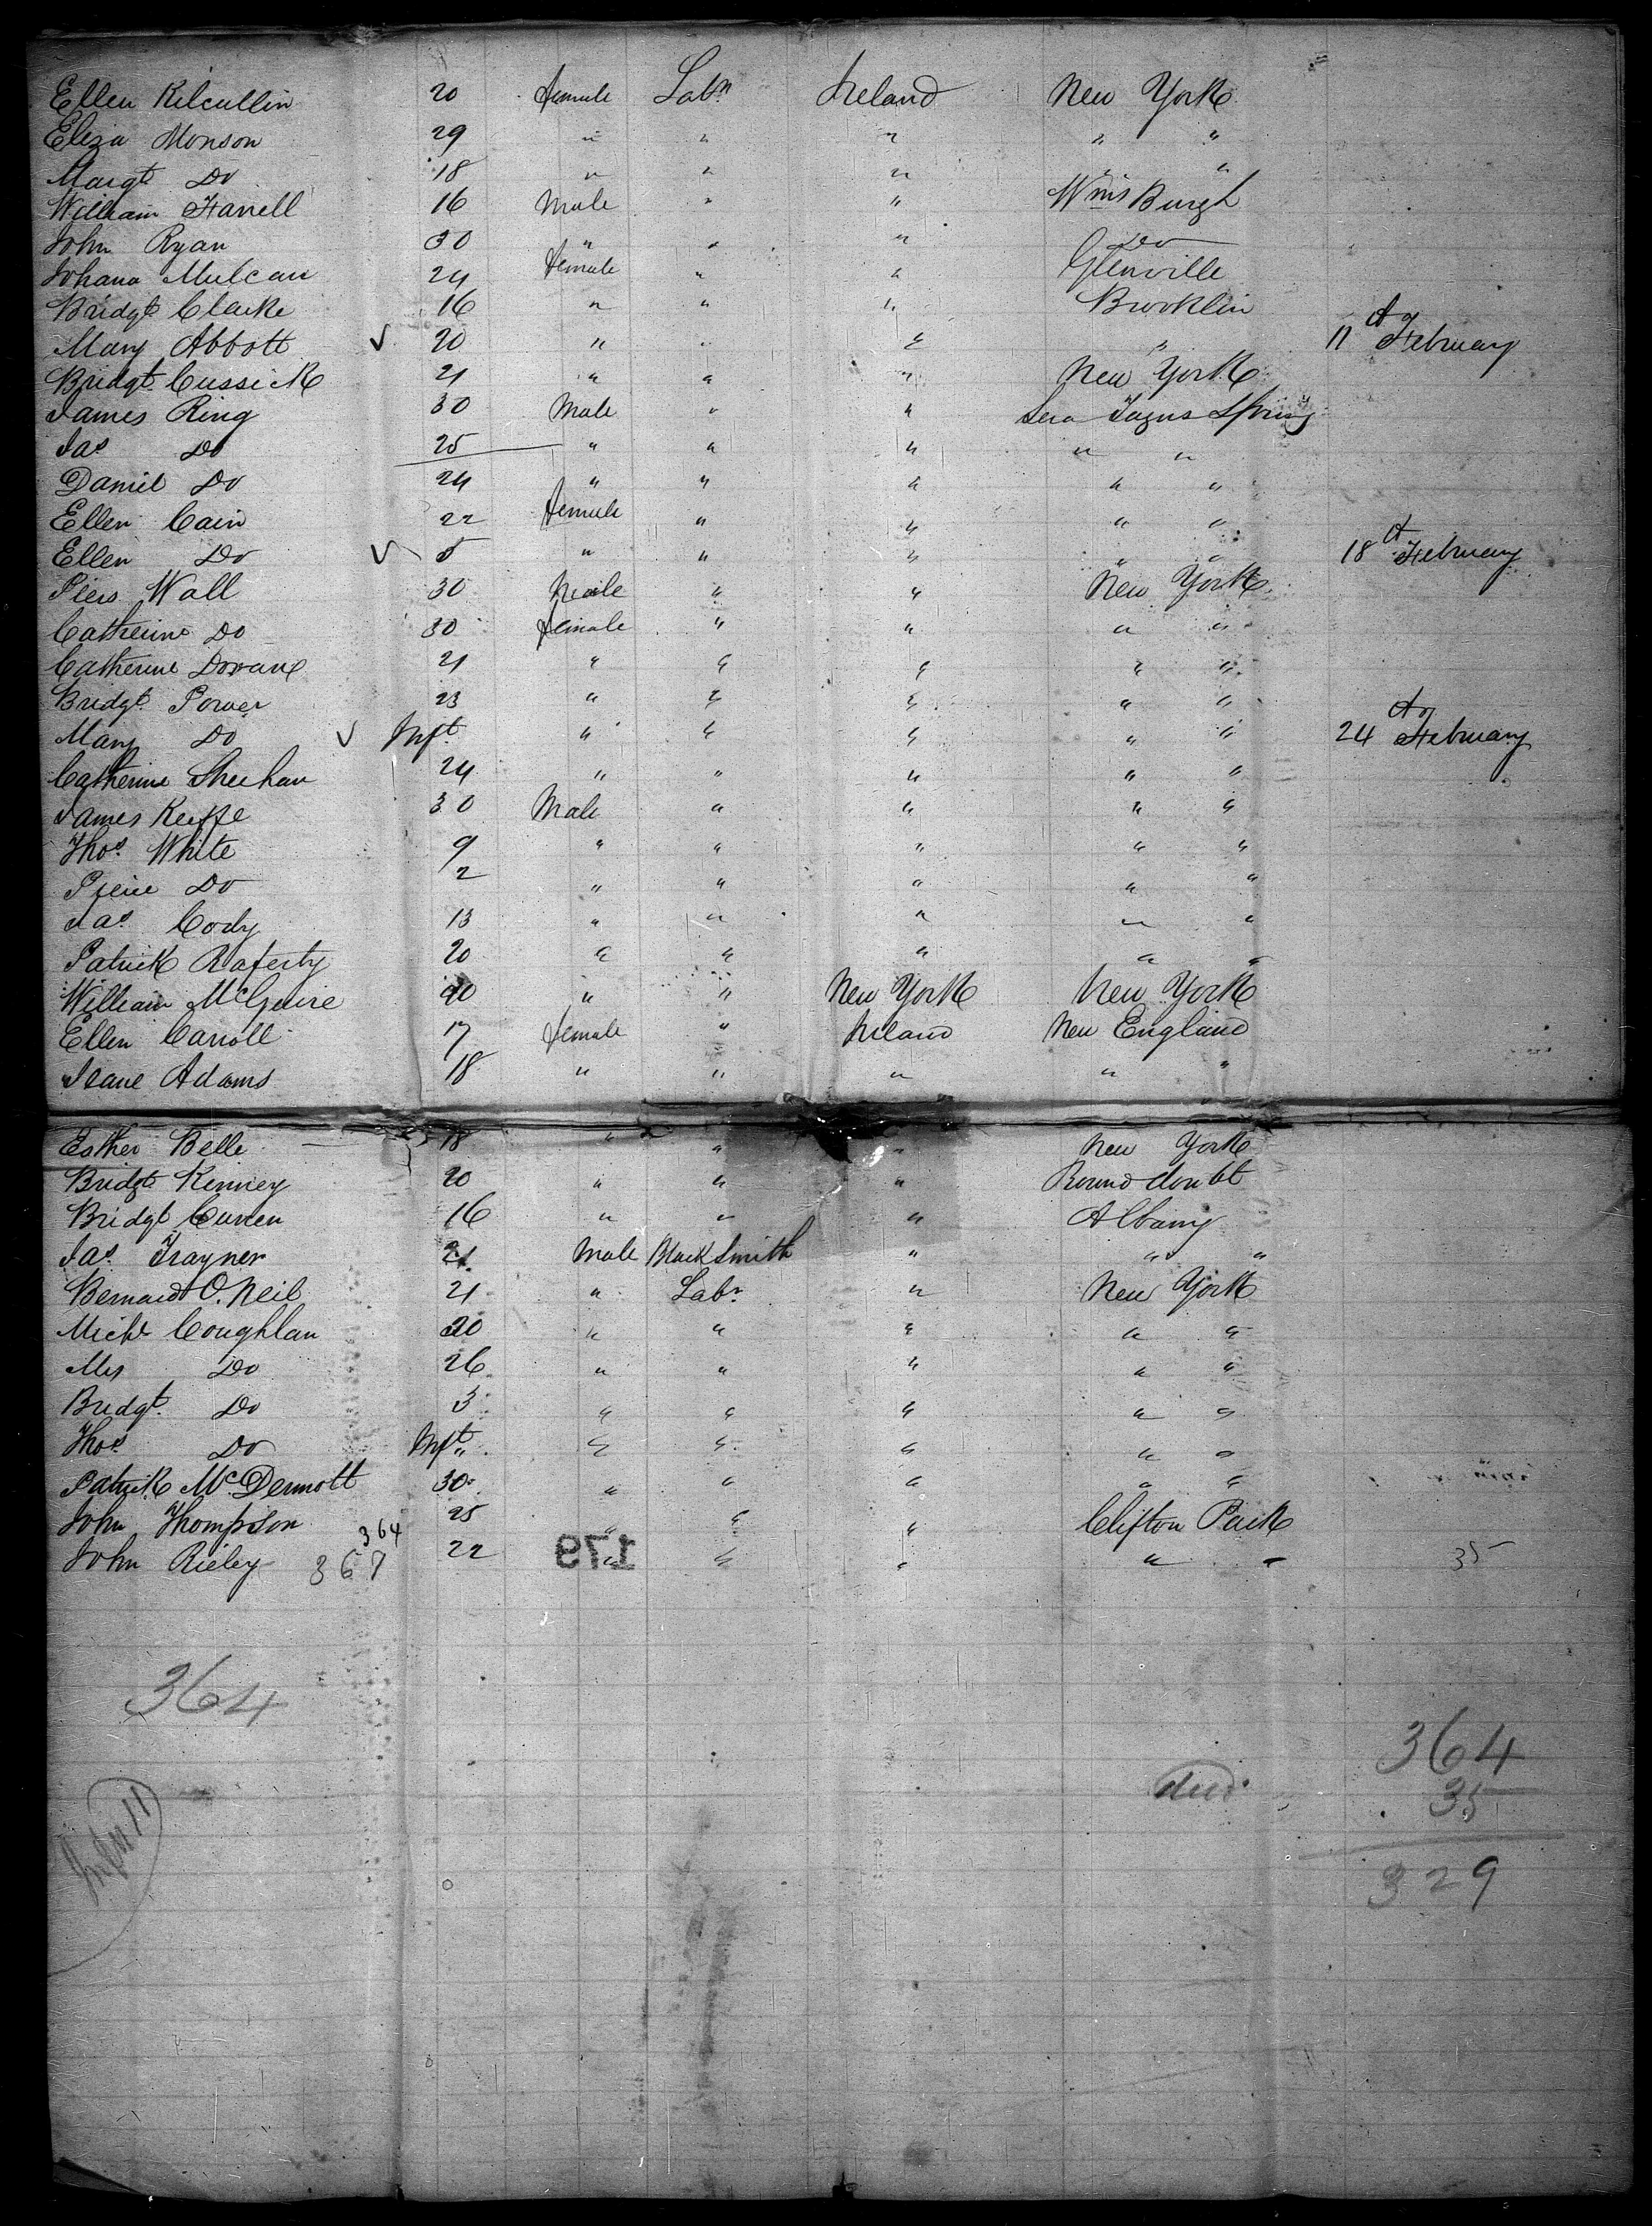 Ellen Kilcullin 20 Female Labr Ireland New York
Eliza Monson 29 " " " " "
Margt Do 18 " " " " "
William Farrell 16 Male " " Wms Burgh
John Ryan 30 " " " Do
Johana Mulcan 24 Female " " Glenville
Bridgt Clarke 16 " " " Brooklin
Mary Abbott ✓ 20 " " " " 11 February
Bridgt Cussick 21 " " " New York
James Ring 30 Male " " Spring
Jas Do 25 " " " " "
Daniel Do 24 " " " " "
Ellen Cain 22 Female " " " "
Ellen Do ✓ 5 " " " " " 18 February
Piers Wall 30 Male " " New York
Catherine Do 30 Female " " " "
Catherine Dorvane 21 " " " " "
Bridgt Power 23 " " " " "
Mary Do ✓ Inft " " " " " 24 February
Catherine Sheehan 24 " " " " "
James Keiffe 30 Male " " " "
Thos White 9 " " " " "
Pierce Do 2 " " " " "
Jas Cody 13 " " " " "
Patrick Raferty 20 " " " " "
William McGuire 40 " " New York New York
Ellen Carroll 17 Female " Ireland New England
Jeane Adams 18 " " " " "
Esther Belle 18 " " " New York
Bridgt Kenney 20 " " " Round doubt
Bridgt Curren 16 " " " Albany
Jas Traynor 21 Male Black Smith " " "
Bernard O.Neil 21 " Labr " New York
Michl Coughlan 30 " " " " "
Mrs Do 26 " " " " "
Bridgt Do 3 " " " " "
Thos Do Inft " " " " "
Patrick McDermott 30 " " " " "
John Thompson 25 " " " Clifton Park
364
John Rieley 367 22 " " " " " 35
179
364
364
35
329
died
Infts 11